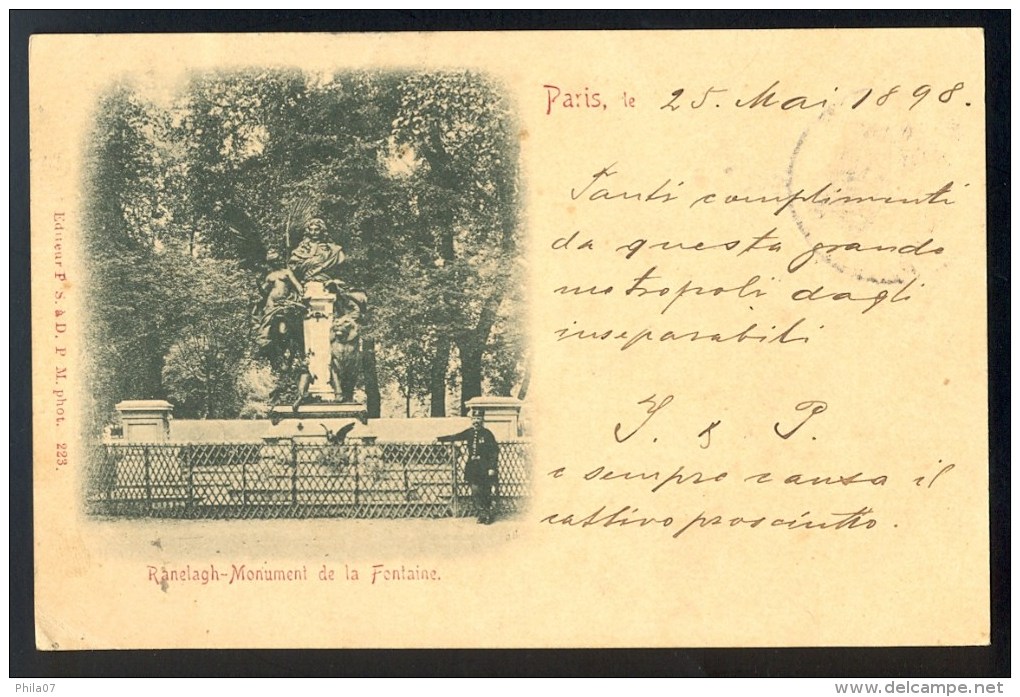 Paris, le 25. Mai 1898.
Tanti complimenti
da questa grande
metropoli dagli
inseparabili
& P.
e sempre causa il
cattivo prosciutto.
Editeur P. S. à D. P M. phot. 223.
Ranelagh-Monument de la Fontaine.
Phila07
www.delcampe.net